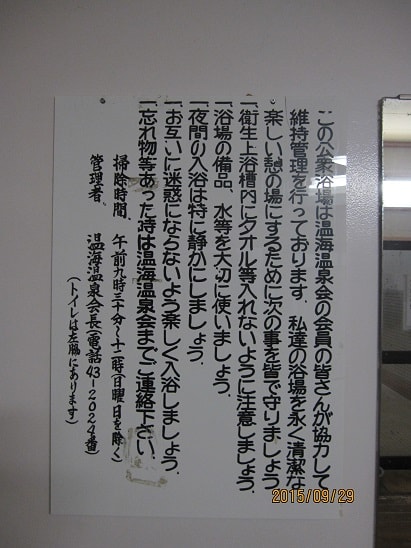 この公衆浴場は温海温泉会の会員の皆さんが協力して
維持管理を行っております．私達の浴場を永く清潔な
楽しい憩の場にするために次の事を皆で守りましょう
一衛生上浴槽内にタオル等入れないように注意しましょう．
一浴場の備品、水等を大切に使いましょう．
一夜間の入浴は特に静かにしましょう．
一お互いに迷惑にならないよう楽しく入浴しましょう．
一忘れ物等あった時は温海温泉会までご連絡下さい．
掃除時間、午前九時三十分〜十二時(日曜日を除く)
管理者、温海温泉会長(電話43-2024番)
(トイレは左脇にあります)
2015/09/29